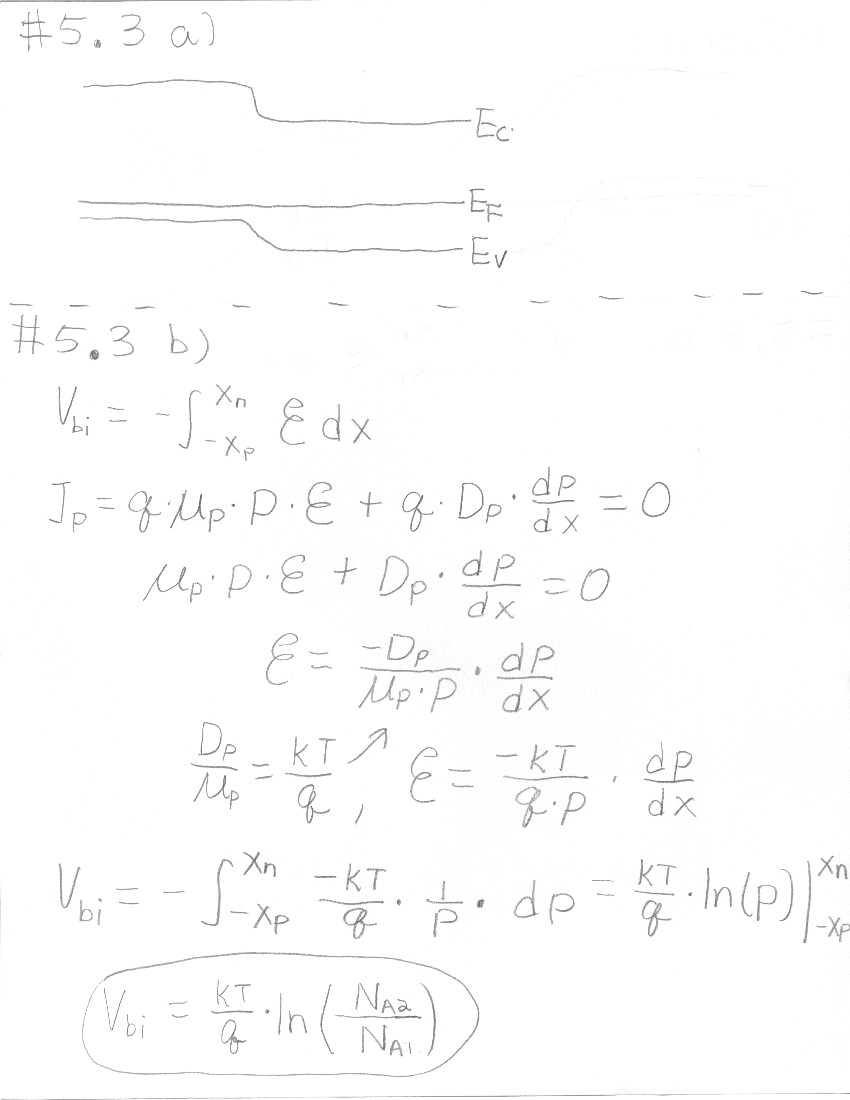 #5.3 a)
Ec
EF
Ev
#5.3 b)
Vbi = -∫_{-xp}^{xn} ℰ dx
Jp = q·μp·p·ℰ + q·Dp·dp/dx = 0
μp·p·ℰ + Dp·dp/dx = 0
ℰ = -Dp/(μp·p) · dp/dx
Dp/μp = kT/q ↗, ℰ = -kT/(q·p) · dp/dx
Vbi = -∫_{-xp}^{xn} -kT/q · 1/p · dp = kT/q · ln(p)|_{-xp}^{xn}
Vbi = kT/q · ln(NA2/NA1)